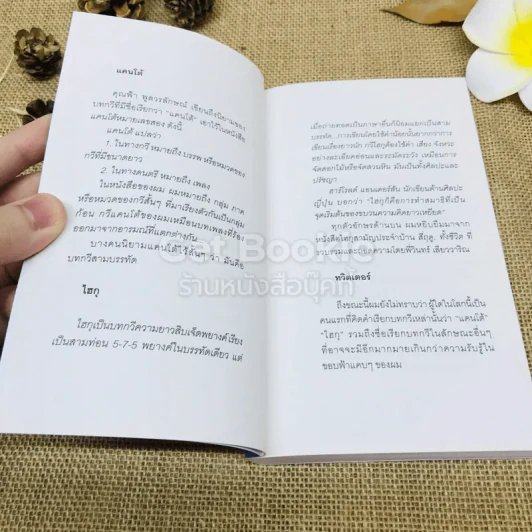 แคนโต้
คุณฟ้า พูลวรลักษณ์ เขียนถึงนิยามของ
บทกวีที่มีชื่อเรียกว่า "แคนโต้" เอาไว้ในหนังสือ
แคนโต้หมายเลขสอง ดังนี้
แคนโต้ แปลว่า
1. ในทางกวี หมายถึง บรรพ หรือหมวดของ
กวีที่มีขนาดยาว
2. ในทางดนตรี หมายถึง เพลง
ในหนังสือของผม ผมหมายถึง กลุ่ม ภาค
หรือหมวดของกวีสั้นๆ ที่มาเรียงตัวกันเป็นกลุ่ม
ก้อน กวีแคนโต้ของผมเหมือนบทเพลงที่ร้อง
ออกมาจากอารมณ์ที่แตกต่างกัน
บางคนนิยามแคนโต้ไว้สั้นๆ ว่า มันคือ
บทกวีสามบรรทัด
ไฮกุ
ไฮกุเป็นบทกวีความยาวสิบเจ็ดพยางค์ เรียง
เป็นสามท่อน 5-7-5 พยางค์ในบรรทัดเดียว แต่
เมื่อถ่ายทอดเป็นภาษาอื่นก็นิยมแยกเป็นสาม
บรรทัด...การเขียนโดยใช้คำน้อยนั้นยากกว่าการ
เขียนเรื่องยาวนัก กวีไฮกุต้องใช้คำ เสียง จังหวะ
อย่างละเอียดอ่อนและระมัดระวัง เหมือนการ
จัดดอกไม้หรือจัดสวนหิน มันเป็นทั้งศิลปะและ
ปรัชญา
ฮาร์โรลด์ แฮนเดอร์สัน นักเขียนด้านศิลปะ
ญี่ปุ่น บอกว่า "ไฮกุคือการทำสมาธิที่เป็น
จุดเริ่มต้นของขบวนความคิดยาวเหยียด"
ทุกตัวอักษรด้านบน ผมหยิบยืมมาจาก
หนังสือไฮกุสามัญประจำบ้าน สี่ฤดู, ทั้งชีวิต ที่
รวบรวมและเรียบเรียงความโดยพี่วินทร์ เลียววาริณ
ทวิตเตอร์
ถึงขณะนี้ผมยังไม่ทราบว่า ผู้ใดในโลกนี้เป็น
คนแรกที่คิดคำเรียกบทกวีเหล่านั้นว่า "แคนโต้"
"ไฮกุ" รวมถึงชื่อเรียกบทกวีในลักษณะอื่นๆ
ที่อาจจะมีอีกมากมายเกินกว่าความรับรู้ใน
ขอบฟ้าแคบๆ ของผม
ร้านหนังสือบุ๊คที